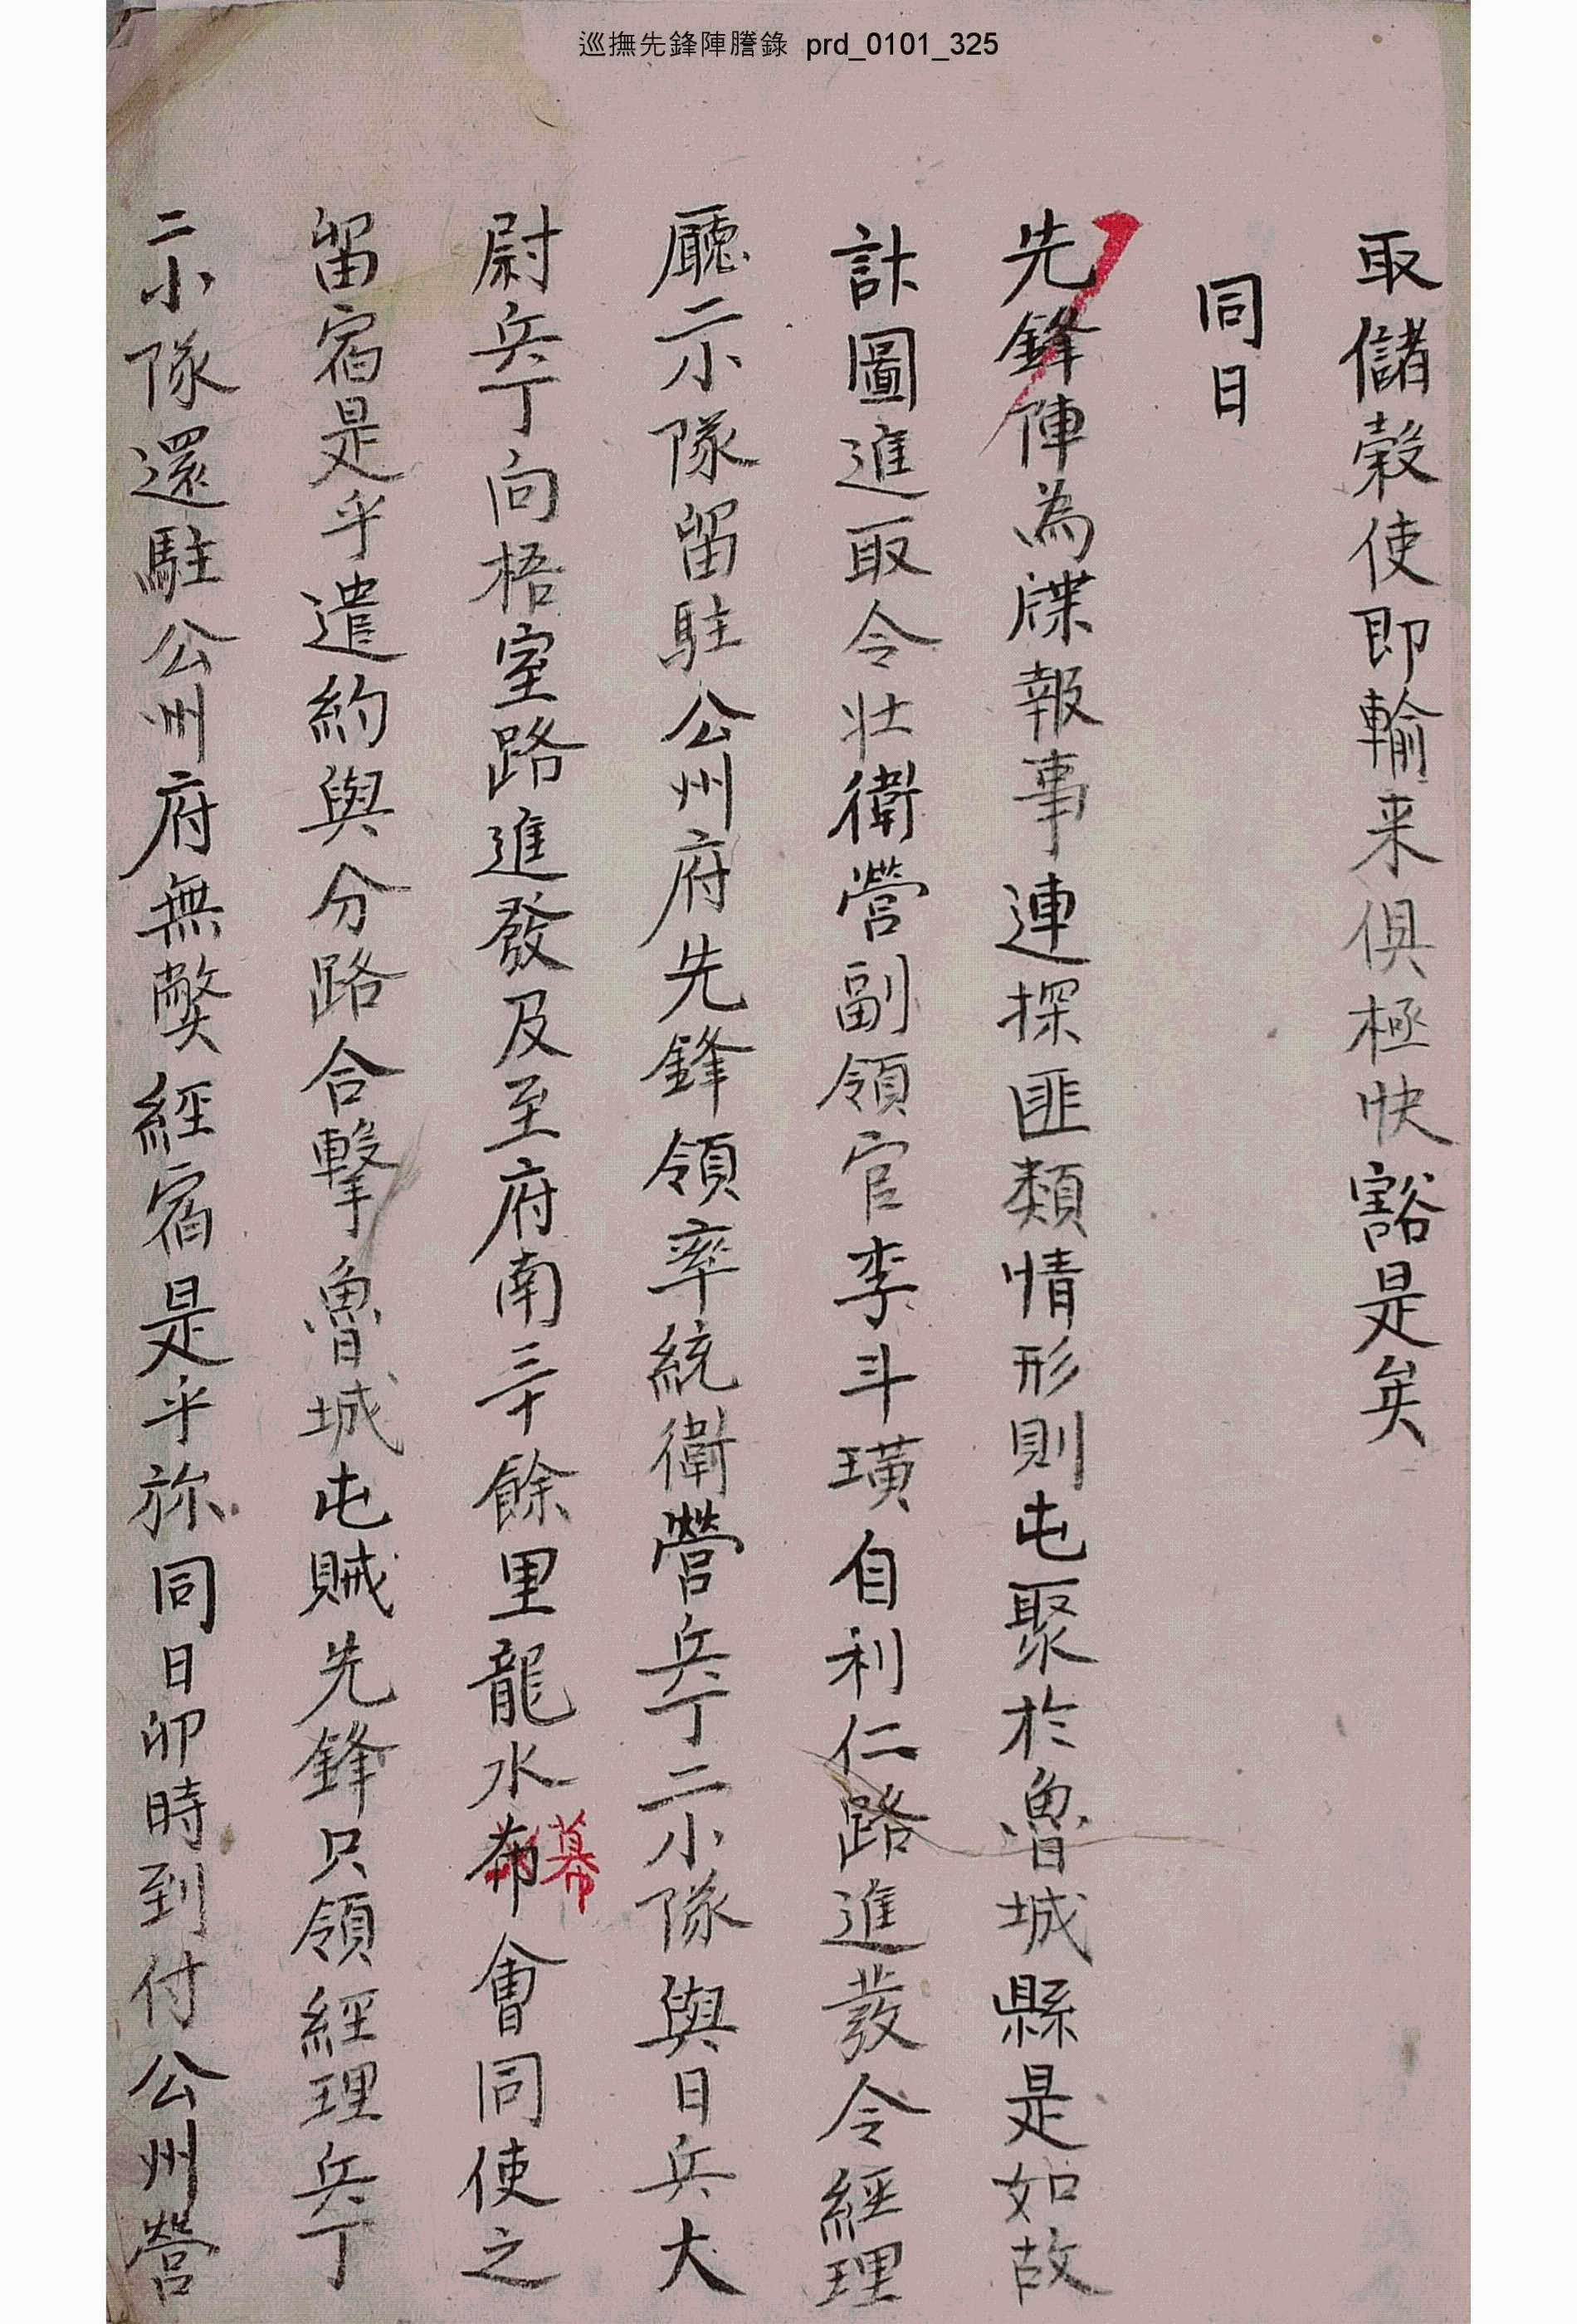 巡撫先鋒陣謄錄 prd_0101_325
取儲穀使即輸来俱極快豁是矣
同日
先鋒陣為牒報事連探匪類情形則屯聚於魯城縣是如故
計圖進取令壯衛營副領官李斗璜自利仁路進發令經理
廳二小隊留駐公州府先鋒領率統衛營兵丁二小隊與日兵大
尉兵丁向梧室路進發及至府南三十餘里龍水布會同使之
幕
留宿是乎遣約與分路合擊魯城屯賊先鋒只領經理兵丁
二小隊還駐公州府無獘經宿是乎旀同日卯時到付公州營